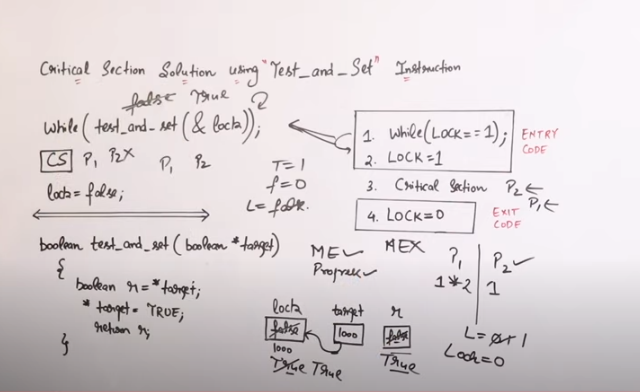 Critical Section Solution using "Test_and_Set" Instruction
false True
while(test_and_set(&lock));
CS P1 P2X P1 P2
lock=false;
T=1
f=0
L=false.
1. While(LOCK==1);
2. LOCK=1
ENTRY CODE
3. Critical Section P2←
P1←
4. LOCK=0
EXIT CODE
boolean test_and_set(boolean *target)
{
boolean r=*target;
*target=TRUE;
return r;
}
ME✓ MEX
Progress✓
P1 P2✓
1*2 1
lock target r
false 1000 false
1000
True True True
L=0+1
Lock=0